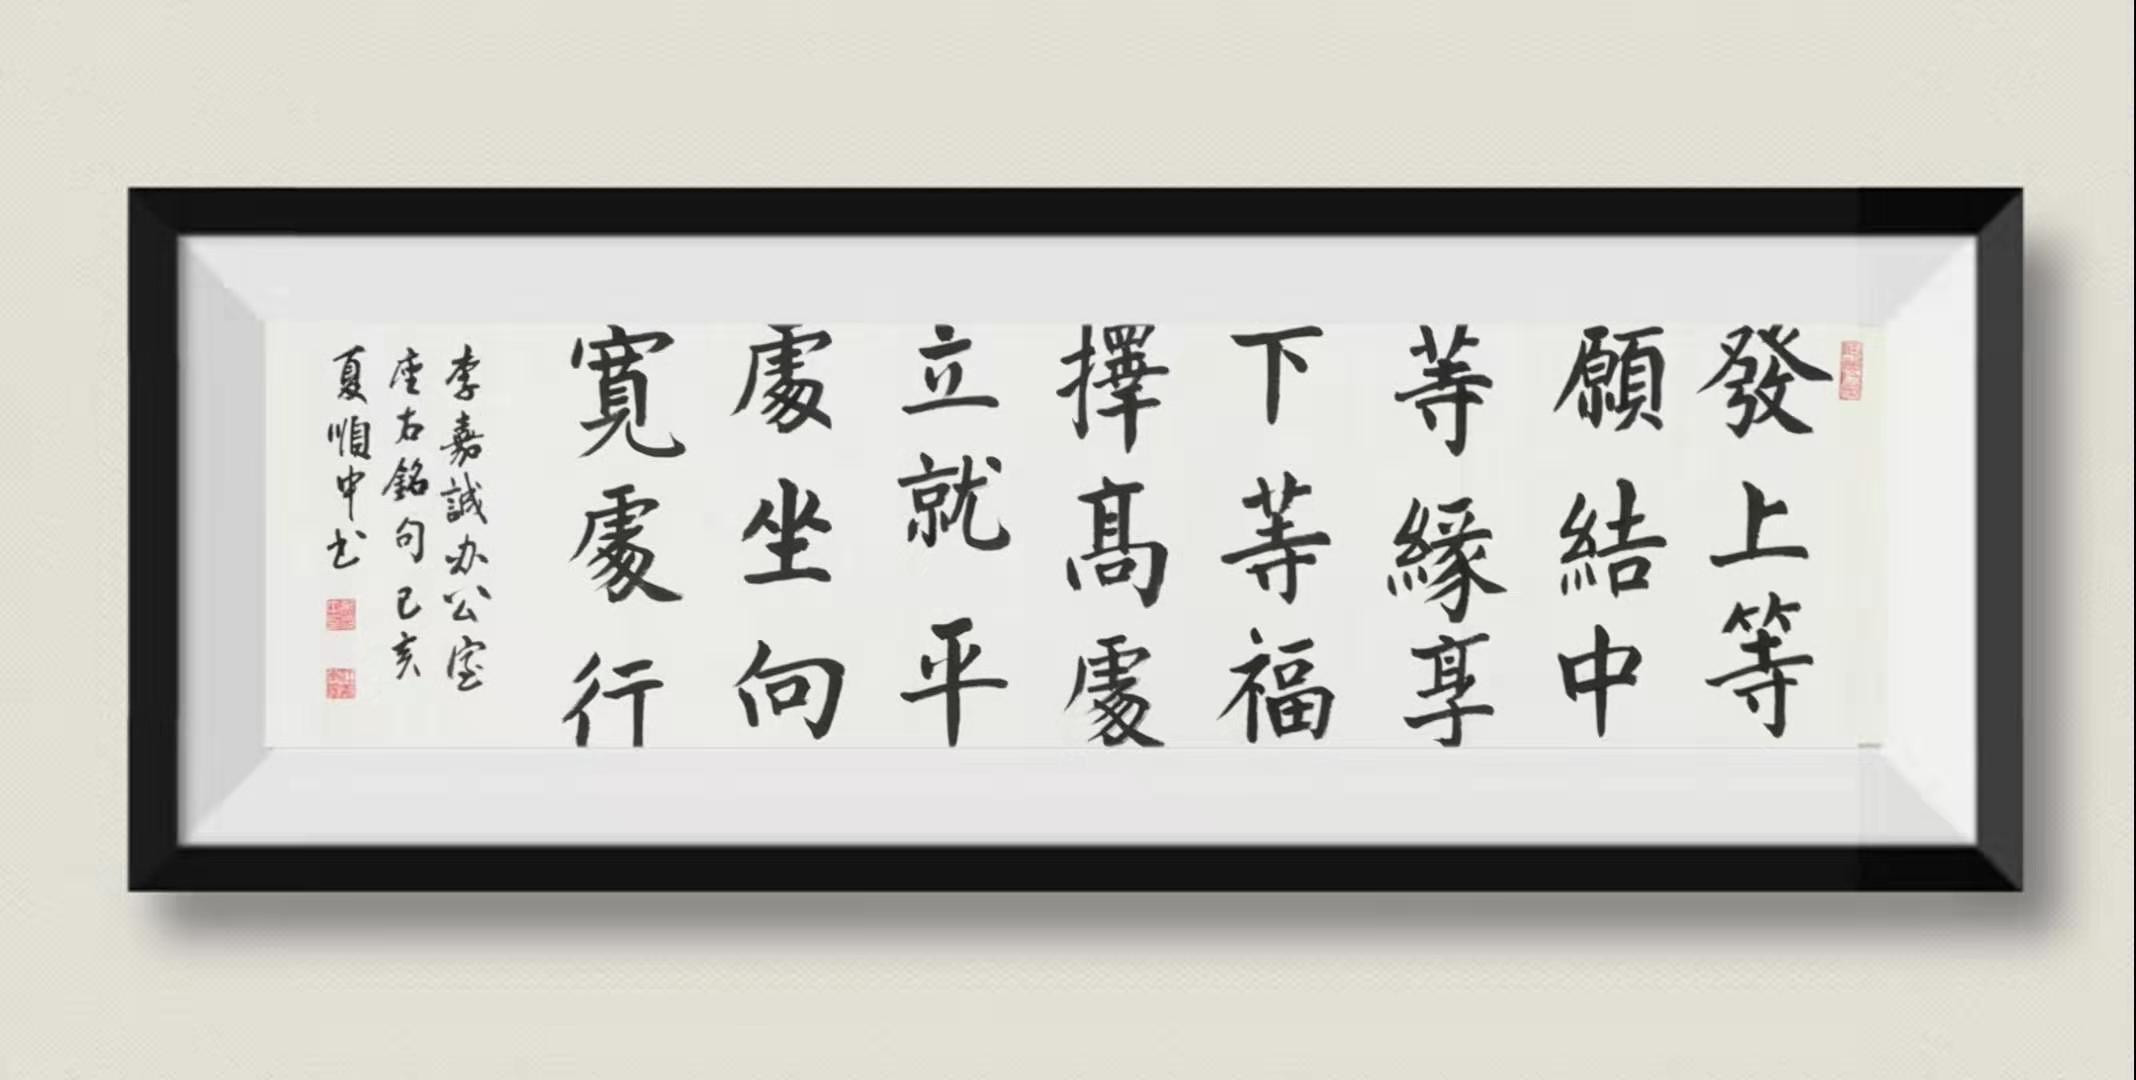 發上等
願結中
等緣享
下等福
擇高處
立就平
處坐向
寬處行
李嘉誠办公室
座右銘句己亥
夏順申书